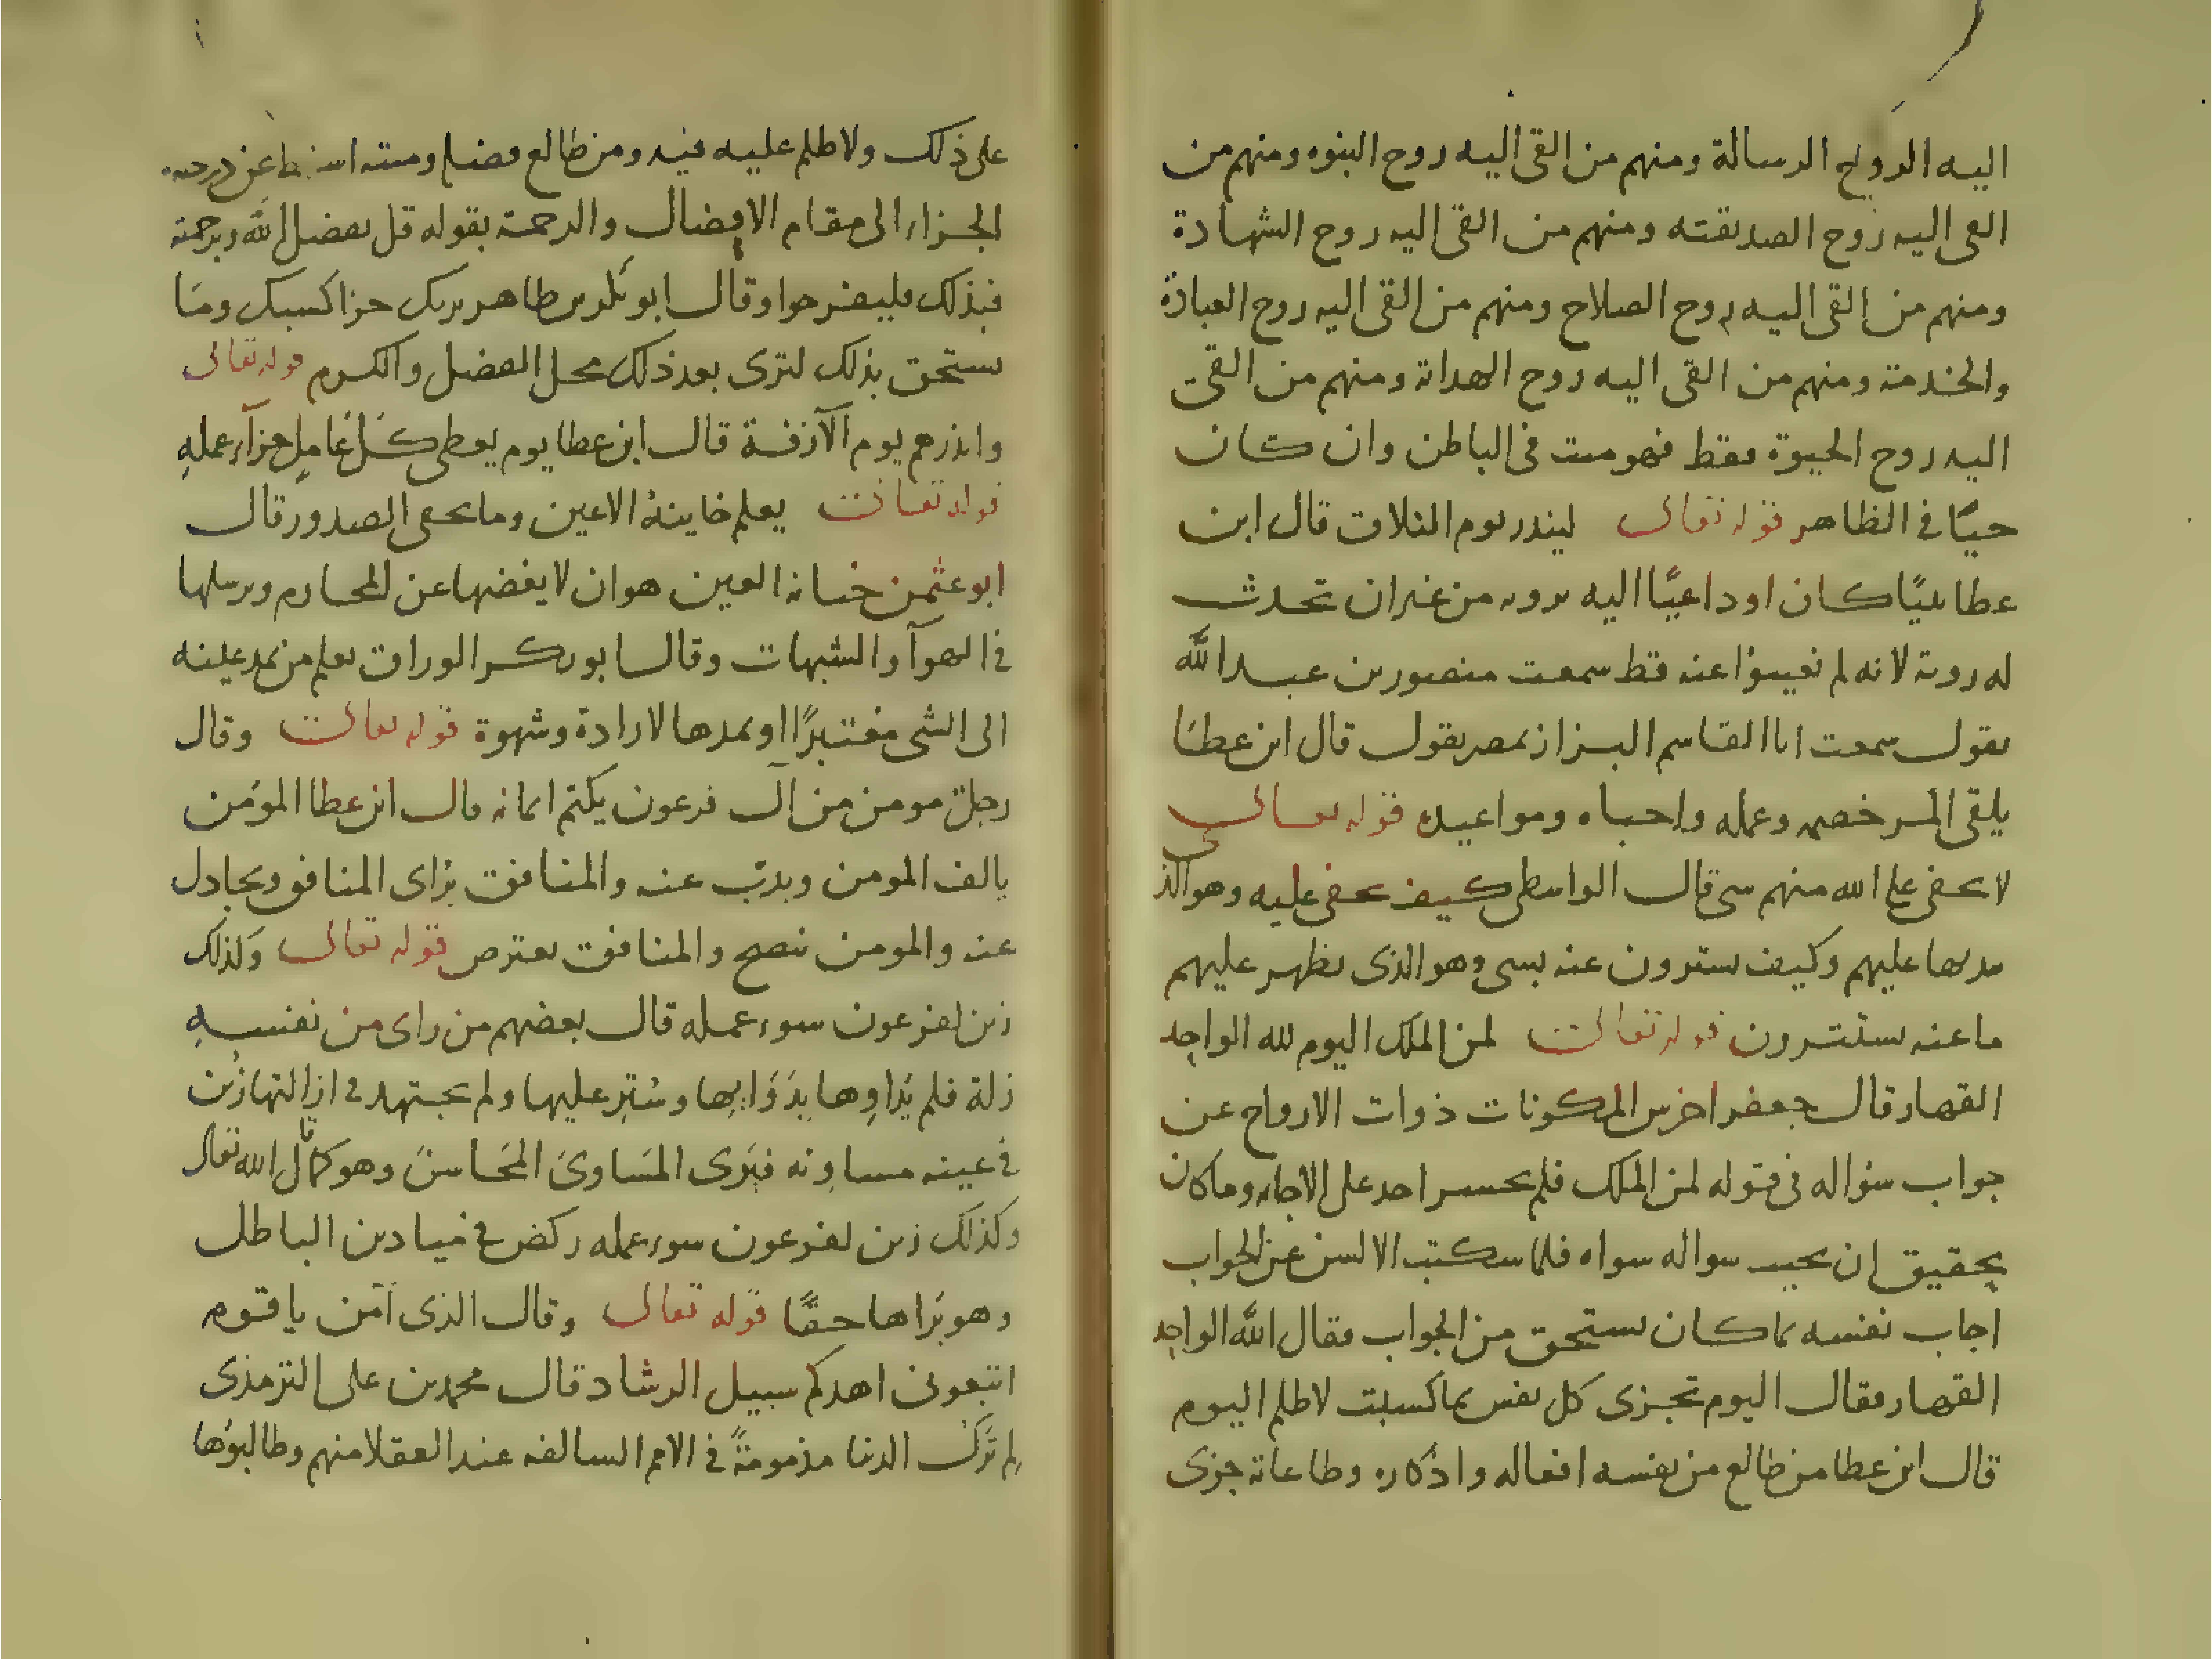 اليه الروح الرسالة ومنهم من القى اليه روح النبوه ومنهم من
القى اليه روح الصديقته ومنهم من القى اليه روح الشهادة
ومنهم من القى اليه روح الصلاح ومنهم من القى اليه روح العبادة
والخدمة ومنهم من القى اليه روح الهداته ومنهم من القى
اليه روح الحيوة فقط فهو ميت فى الباطن وان كان
حيًا فى الظاهر قوله تعالى لينذر يوم التلاق قال ابن
عطا كان اوداعيًا اليه من غيران تحدث
له روية لانه لم عنه قط سمعت منصور بن عبد الله
يقول سمعت ابا القاسم البزاز بمصر يقول قال ابن عطا
يلقى المر خصمه وعمله واحباه ومواعيده قوله تعالى
لا يخفى على الله منهم شى قال الواسطى كيف يخفى عليه وهو الذى
عليهم وكيف يسترون عنه بشى وهو الذى يظهر عليهم
ما عنه يستترون قوله تعالى لمن الملك اليوم لله الواحد
القهار قال جعفر اخرس المكونات ذوات الارواح عن
جواب سؤاله فى قوله لمن الملك فلم يجسر احد على الاجابه وما كان
بحقيق ان يجيب سواله سواه فلما سكتت الالسن عن الجواب
اجاب نفسه بما كان يستحق من الجواب فقال الله الواحد
القهار فقال اليوم تجزى كل نفس بما كسبت لا ظلم اليوم
قال ابن عطا من طالع من نفسه افعاله واذكاره وطاعاته جزى
على ذلك ولا ظلم عليه فيه ومن طالع فضله ومنته عن درجه
الجزاء الى مقام الافضال والرحمة بقوله قل بفضل الله وبرحمته
فبذلك فليفرحوا وقال ابو بكر بن طاهر يريك جزا كسبك وما
يستحق بذلك لترى بعد ذلك محل الفضل والكرم قوله تعالى
وانذرهم يوم الآزفة قال ابن عطا يوم يعطى كل عامل جزآء عمله
قوله تعالى يعلم خاينة الاعين وما تخفى الصدور قال
ابو عثمن خيانة العين هو ان لا يغضها عن المحارم ويرسلها
فى الهوآ والشبهات وقال ابو بكر الوراق يعلم من يمد عينه
الى الشى معتبرًا او يمدها لارادة وشهوة قوله تعالى وقال
رجل مومن من آل فرعون يكتم ايمانه قال ابن عطا المؤمن
يالف المومن ويذب عنه والمنافق يراى المنافق ويجادل
عنه والمومن ينصح والمنافق يعترض قوله تعالى وكذلك
زين لفرعون سوء عمله قال بعضهم من راى من نفسه
زلة فلم يداوها بدوايها وستر عليها ولم يجتهد فى ازالتها زين
فى عينه مساويه فيرى المساوى المحاسن وهو كما قال الله تعالى
وكذلك زين لفرعون سوء عمله ركض فى ميادين الباطل
وهو يراها حقًا قوله تعالى وقال الذى آمن يا قوم
اتبعونى اهدكم سبيل الرشاد قال محمد بن على الترمذى
لم تزل الدنيا مذمومةً فى الامم السالفه عند العقلا منهم وطالبوها